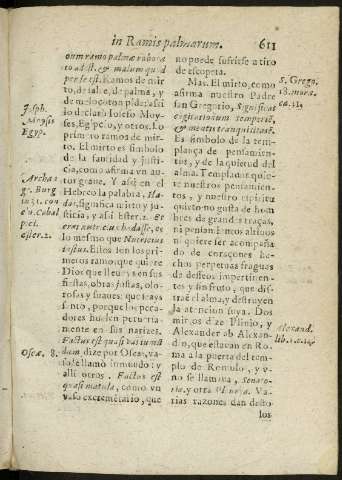 in Ramis palmarum. 611
cum ramo palmæ robora
to ad st. & malum quid
per se est. Ramos de mir
to, de salze, de palma, y
de melocoton piden assi
lo declarò Iosefo Moy-
ses, Egypcio, y otros. Lo
primero ramos de mir-
to. El mirto es simbolo
de la santidad y justi-
cia, como afirma vn au
tor graue. Y assi en el
Hebreo la palabra, Ha-
das, significa mirto y jus
ticia, y assi Ester. 2. Et
erat nutricius hadasse, es
lo mesmo que Nutricius
iustus. Estos son los pri-
meros ramos que quiere
Dios que lleuen sus
fiestas, obras justas, olo-
rosas y suaues: que trays
santo, porque los peca
dores huelen pestarta-
mente en sus narizes.
Factus est quasi vas immũ
dum, dize por Oseas, va-
so se llamò inmundo: y
alli otros. Factus est
quasi matula, como vn
vaso excrementario, que
no puede sufrirse a tiro
de escopeta.
Mas. El mirto, como
afirma nuestro Padre
san Gregorio, Significat
cogitationum temperiē,
& mentis tranquilitatē.
Es simbolo de la tem-
plança de pensamien-
tos, y de la quietud del
alma. Templanza quie-
re nuestros pensamien-
tos, y nuestro espiritu
quieto no gusta de hom
bres de grandes traças,
ni pensamientos altiuos
ni quiere ser acompaña
do de coraçones he-
chos perpetuas fraguas
de desseos impertinen-
tes y sin fruto, que dis-
traē el alma, y destruyen
la atencion suya. Dos
mirtos dize Plinio, y
Alexander ab Alexan-
dro, que estauan en Ro
ma a la puerta del tem-
plo de Romulo, y v-
no se llamaua,
y otra Va-
rias razones dan desto
los
Joseph.
Moyses
Egyp.
Ester. 2.
Oseæ. 8.
S. Grego.
18. mora.
Alexand.